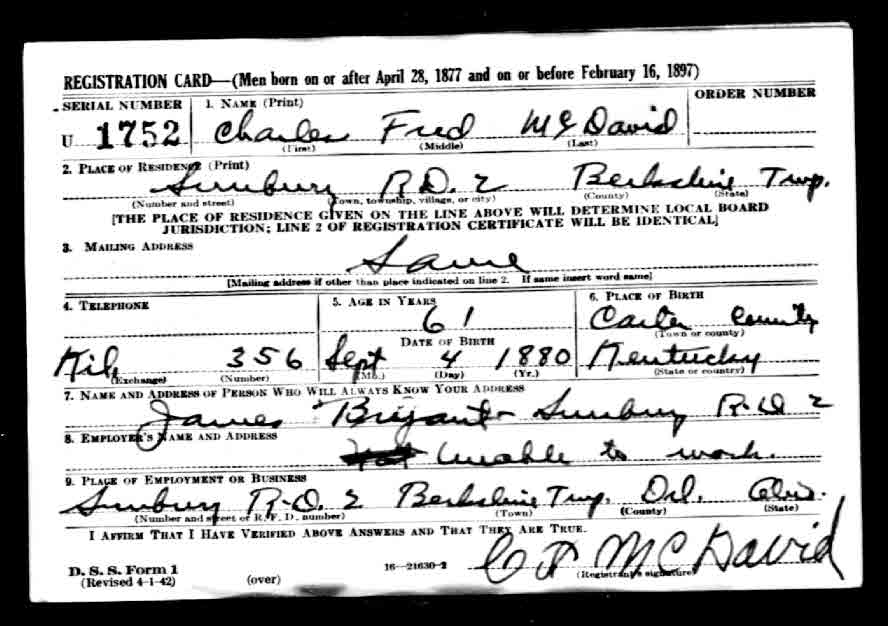 REGISTRATION CARD—(Men born on or after April 28, 1877 and on or before February 16, 1897)
SERIAL NUMBER 1. NAME (Print) ORDER NUMBER
U 1752 Charles Fred McDavid
(First) (Middle) (Last)
2. PLACE OF RESIDENCE (Print)
Sunbury R.D. 2 Berkshire Twp.
(Number and street) (Town, township, village, or city) (County) (State)
[THE PLACE OF RESIDENCE GIVEN ON THE LINE ABOVE WILL DETERMINE LOCAL BOARD
JURISDICTION; LINE 2 OF REGISTRATION CERTIFICATE WILL BE IDENTICAL]
3. MAILING ADDRESS
Same
[Mailing address if other than place indicated on line 2. If same insert word same]
4. TELEPHONE 5. AGE IN YEARS 6. PLACE OF BIRTH
61 Carter County
(Town or county)
DATE OF BIRTH
Kil. 356 Sept 4 1880 Kentucky
(Exchange) (Number) (Mo.) (Day) (Yr.) (State or country)
7. NAME AND ADDRESS OF PERSON WHO WILL ALWAYS KNOW YOUR ADDRESS
James Bryant - Sunbury R-D 2
8. EMPLOYER'S NAME AND ADDRESS
Unable to work.
9. PLACE OF EMPLOYMENT OR BUSINESS
Sunbury R-D. 2 Berkshire Twp. Del. Ohio.
(Number and street or R. F. D. number) (Town) (County) (State)
I AFFIRM THAT I HAVE VERIFIED ABOVE ANSWERS AND THAT THEY ARE TRUE.
C F McDavid
D. S. S. Form 1 16—21630-2 (Registrant's signature)
(Revised 4-1-42) (over)